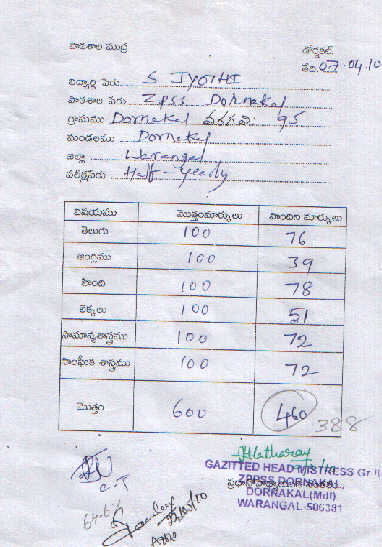 పాఠశాల ముద్ర
డోర్నకల్
తేది. 07.04.10
విద్యార్థి పేరు: S JYOTHI
పాఠశాల పేరు ZPSS Dornakal
గ్రామము Dornakal తరగతి: 9
మండలము Dornakal
జిల్లా Warangal
పరీక్షపేరు Half-Yearly
విషయము మొత్తంమార్కులు పొందిన మార్కులు
తెలుగు 100 76
ఆంగ్లము 100 39
హింది 100 78
లెక్కలు 100 51
సామాన్యశాస్త్రము 100 72
సాంఘీక శాస్త్రము 100 72
మొత్తం 600 460
388
C.T
GAZITTED HEAD MISTRESS Gr II
ZPPSS DORNAKAL
ప్రధానోపాధ్యాయుని సంతకం
DORRAKAL(Mdl)
WARANGAL-506381